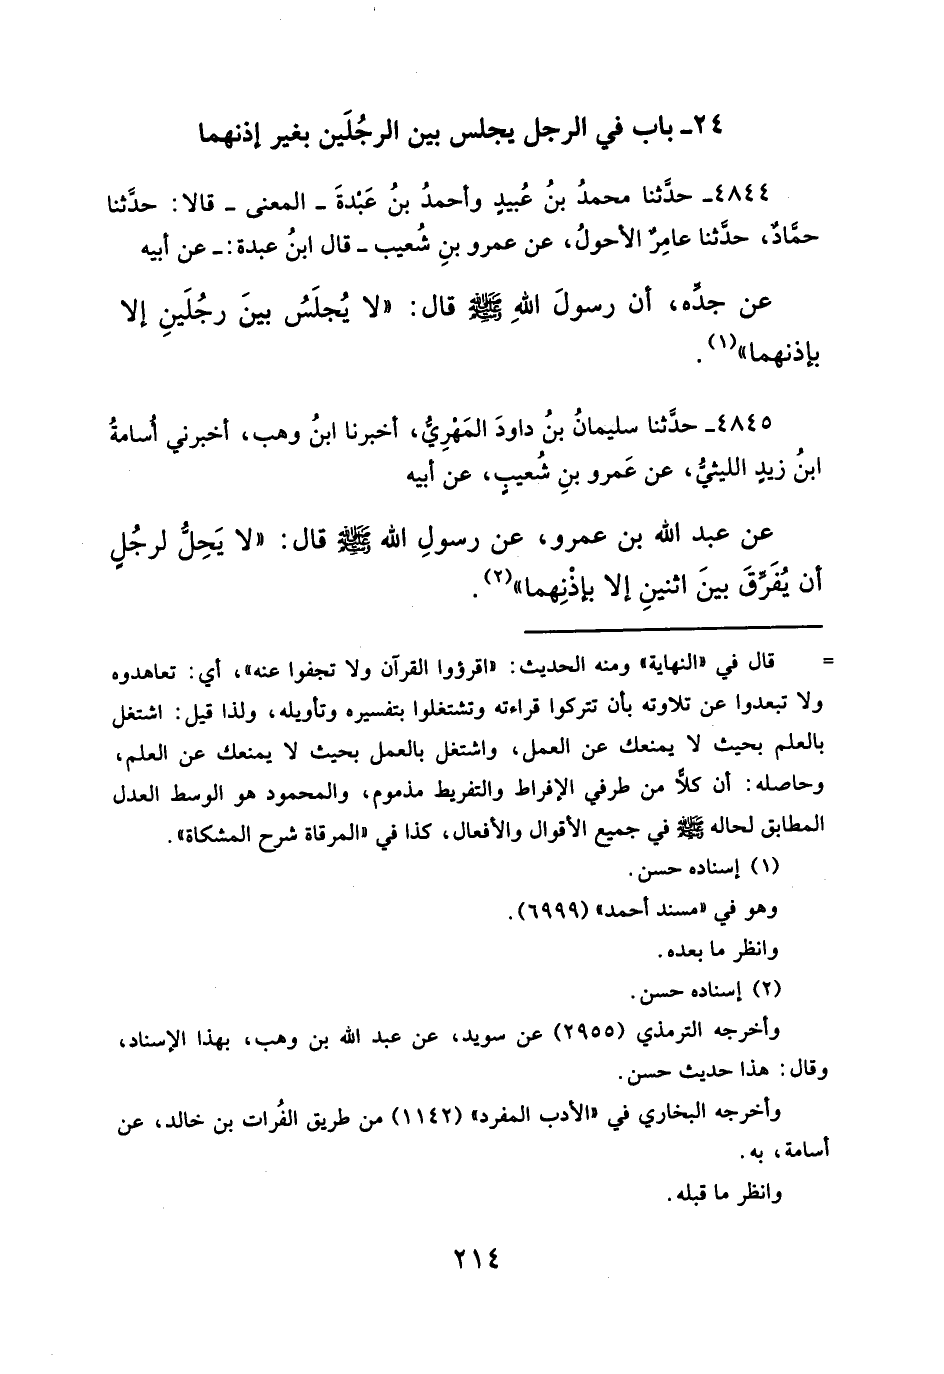 ٢٤- باب في الرجل يجلس بين الرجُلَين بغير إذنهما
٤٨٤٤- حدَّثنا محمدُ بنُ عُبيدٍ وأحمدُ بنُ عَبْدةَ - المعنى - قالا: حدَّثنا
حمَّادٌ، حدَّثنا عامِرٌ الأحولُ، عن عمرو بنِ شُعيب - قال ابنُ عبدة: - عن أبيه
عن جدِّه، أن رسولَ اللهِ ﷺ قال: «لا يُجلَسُ بينَ رجُلَينِ إلا
بإذنهما»(١).
٤٨٤٥- حدَّثنا سليمانُ بنُ داودَ المَهْرِيُّ، أخبرنا ابنُ وهب، أخبرني أُسامةُ
ابنُ زيدٍ الليثيُّ، عن عَمرو بنِ شُعيبٍ، عن أبيه
عن عبد الله بن عمرو، عن رسولِ الله ﷺ قال: «لا يَحِلُّ لرجُلٍ
أن يُفَرِّقَ بينَ اثنينِ إلا بإذْنِهما»(٢).
= قال في «النهاية» ومنه الحديث: «اقرؤوا القرآن ولا تجفوا عنه»، أي: تعاهدوه
ولا تبعدوا عن تلاوته بأن تتركوا قراءته وتشتغلوا بتفسيره وتأويله، ولذا قيل: اشتغل
بالعلم بحيث لا يمنعك عن العمل، واشتغل بالعمل بحيث لا يمنعك عن العلم،
وحاصله: أن كلاًّ من طرفي الإفراط والتفريط مذموم، والمحمود هو الوسط العدل
المطابق لحاله ﷺ في جميع الأقوال والأفعال، كذا في «المرقاة شرح المشكاة».
(١) إسناده حسن.
وهو في «مسند أحمد» (٦٩٩٩).
وانظر ما بعده.
(٢) إسناده حسن.
وأخرجه الترمذي (٢٩٥٥) عن سويد، عن عبد الله بن وهب، بهذا الإسناد،
وقال: هذا حديث حسن.
وأخرجه البخاري في «الأدب المفرد» (١١٤٢) من طريق الفُرات بن خالد، عن
أسامة، به.
وانظر ما قبله.
٢١٤